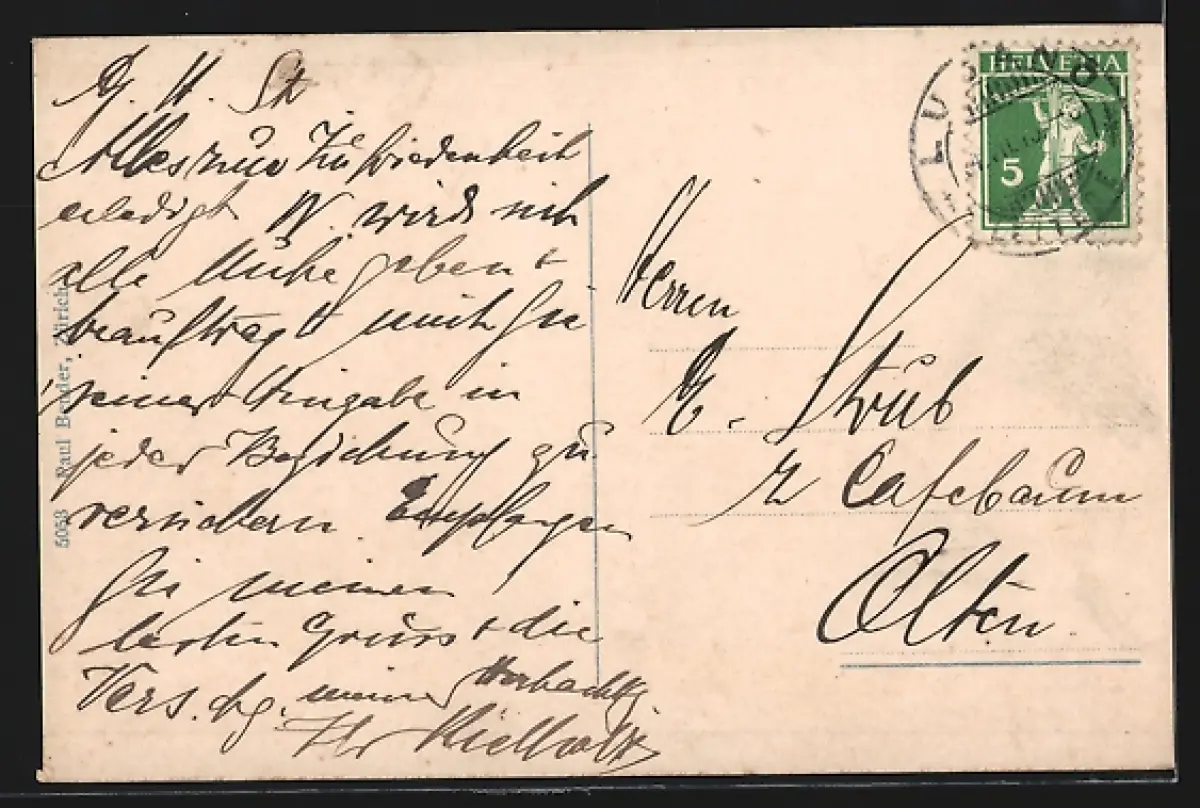 G. H. St
Alles zur Zufriedenheit
erledigt W. wird sich
alle Mühe geben +
beauftragt mich Sie
seiner Hingabe in
jeder Beziehung zu
versichern. Empfangen
Sie meinen
besten Gruss + die
Vers. meiner Hochachtg
Ihr
5053 Paul Bender, Zürich
HELVETIA
5
Herren
E. Strub
z Cafebaum
Olten